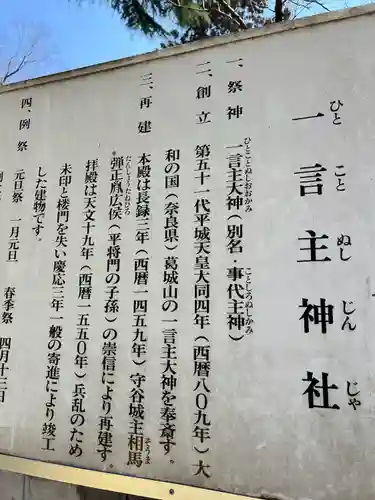 一言主神社
ひとことぬしじんじゃ
一、祭神　一言主大神(別名・事代主神)
ひとことぬしおおかみ　ことしろぬしかみ
二、創立　第五十一代平城天皇大同四年(西暦八〇九年)大
和の国(奈良県)葛城山の一言主大神を奉斎す。
三、再建　本殿は長録三年(西暦一四五九年)守谷城主相馬
そうま
弾正胤広侯(平将門の子孫)の崇信により再建す。
だんじょうたねひろ
拝殿は天文十九年(西暦一五五〇年)兵乱のため
未印と楼門を失い慶応三年一般の寄進により竣工
した建物です。
四、例祭　元旦祭　一月元旦、　春季祭　四月十三日